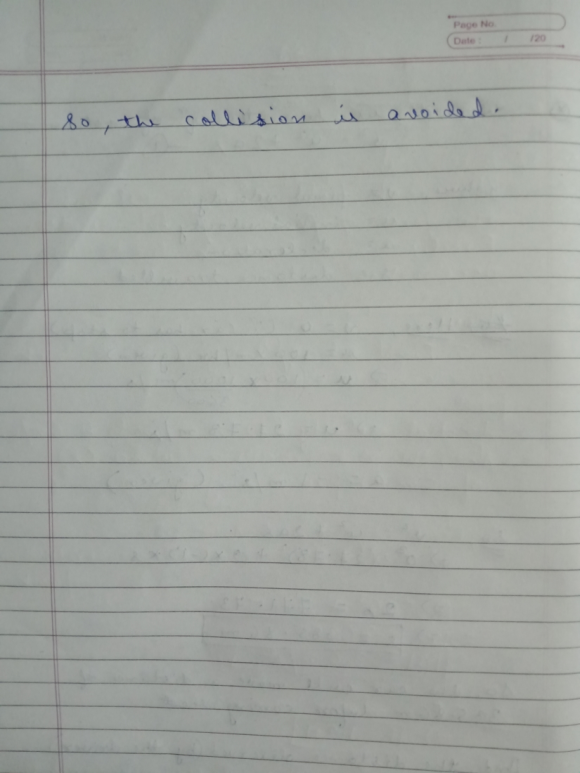 Page No.
Date : / /20
So, the collision is avoided.